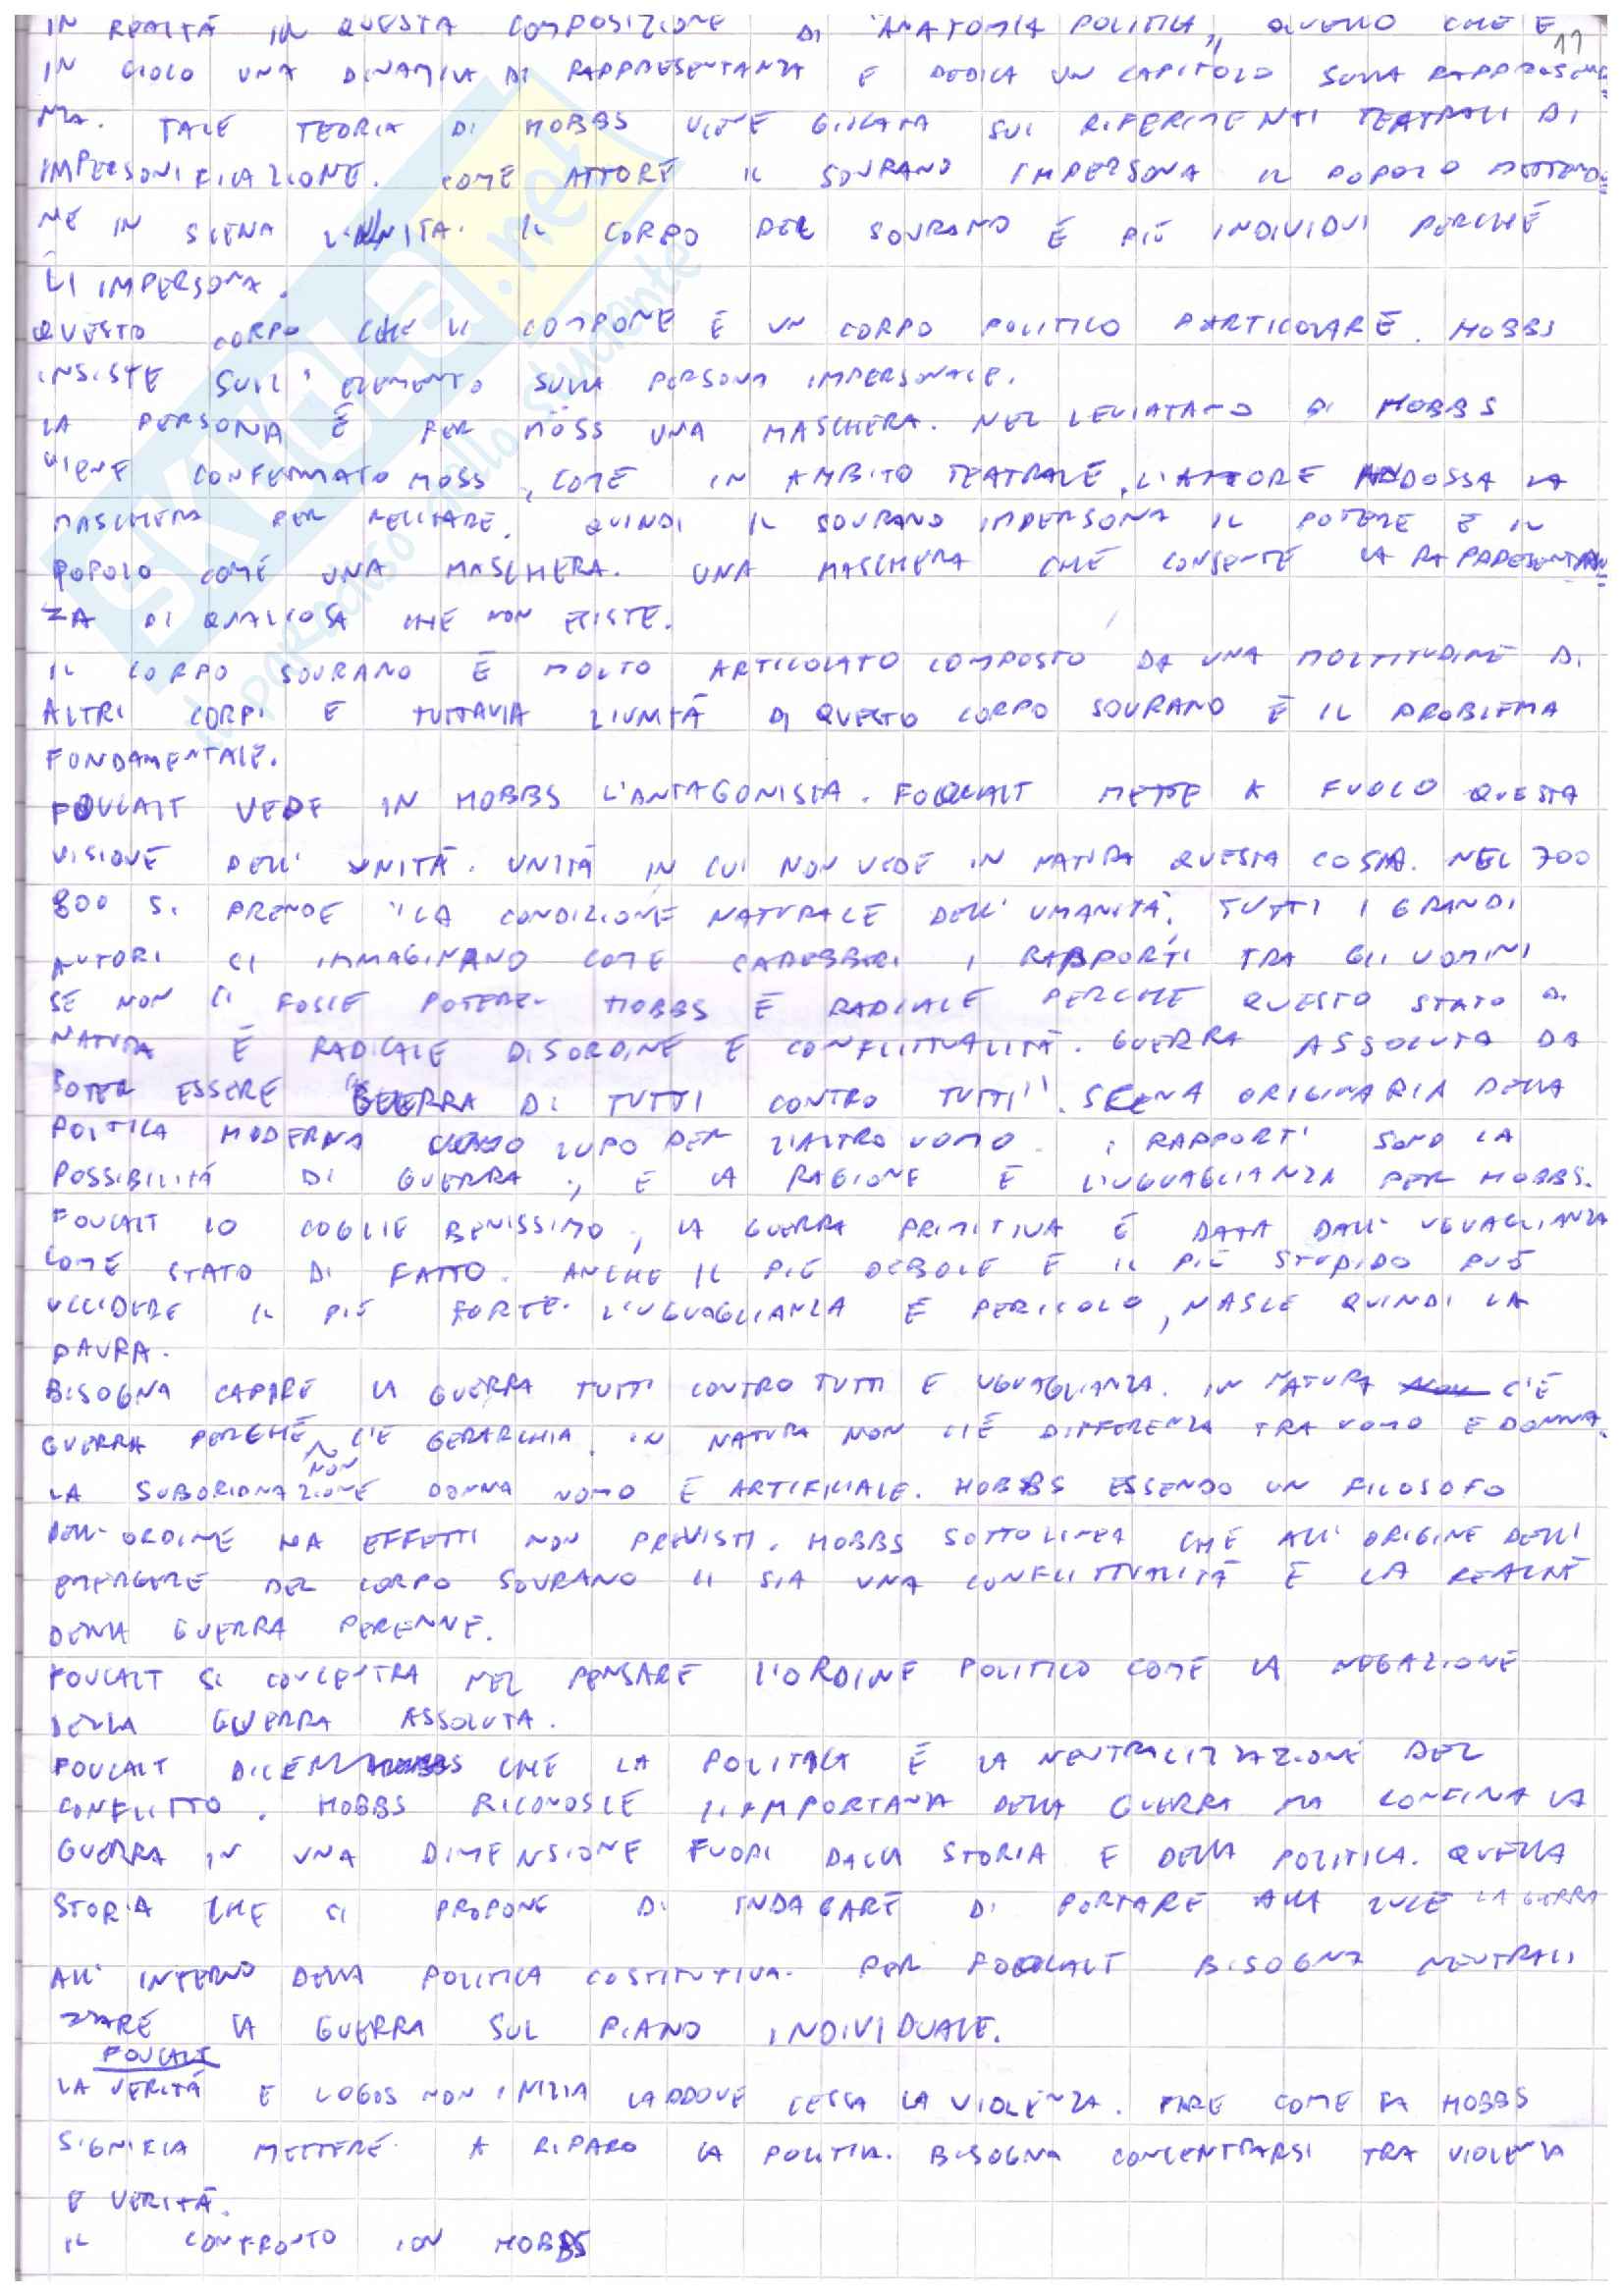 IN REALTÀ IN QUESTA COMPOSIZIONE DI "ANATOMIA POLITICA", QUELLO CHE È
11
IN GIOCO UNA DINAMICA DI RAPPRESENTANZA E DEDICA UN CAPITOLO SULLA RAPPRESENTA
NZA. TALE TEORIA DI HOBBS VIENE GIOCATA SUI RIFERIMENTI TEATRALI DI
IMPERSONIFICAZIONE. COME ATTORE IL SOVRANO IMPERSONA IL POPOLO METTENDO
NE IN SCENA L'UNITÀ. IL CORPO DEL SOVRANO È PIÙ INDIVIDUI PERCHÉ
LI IMPERSONA.
QUESTO CORPO CHE SI COMPONE È UN CORPO POLITICO PARTICOLARE. HOBBS
INSISTE SULL'ELEMENTO SULLA PERSONA IMPERSONALE.
LA PERSONA È PER MOSS UNA MASCHERA. NEL LEVIATANO DI HOBBS
VIENE CONFERMATO MOSS, COME IN AMBITO TEATRALE, L'ATTORE INDOSSA LA
MASCHERA PER RECITARE. QUINDI IL SOVRANO IMPERSONA IL POTERE E IL
POPOLO COME UNA MASCHERA. UNA MASCHERA CHE CONSENTE LA RAPPRESENTAN
ZA DI QUALCOSA CHE NON ESISTE.
IL CORPO SOVRANO È MOLTO ARTICOLATO COMPOSTO DA UNA MOLTITUDINE DI
ALTRI CORPI E TUTTAVIA L'UNITÀ DI QUESTO CORPO SOVRANO È IL PROBLEMA
FONDAMENTALE.
FOUCALT VEDE IN HOBBS L'ANTAGONISTA. FOUCALT METTE A FUOCO QUESTA
VISIONE DELL'UNITÀ. UNITÀ IN CUI NON VEDE IN NATURA QUESTA COSA. NEL 700
800 SI PRENDE "LA CONDIZIONE NATURALE DELL'UMANITÀ". TUTTI I GRANDI
AUTORI CI IMMAGINANO COME SAREBBERO I RAPPORTI TRA GLI UOMINI
SE NON CI FOSSE POTERE. HOBBS È RADICALE PERCHÉ QUESTO STATO DI
NATURA È RADICALE DISORDINE E CONFLITTUALITÀ. GUERRA ASSOLUTA DA
POTER ESSERE "GUERRA DI TUTTI CONTRO TUTTI". SCENA ORIGINARIA DELLA
POLITICA MODERNA UOMO LUPO PER L'ALTRO UOMO. I RAPPORTI SONO LA
POSSIBILITÀ DI GUERRA, E LA RAGIONE È L'UGUAGLIANZA PER HOBBS.
FOUCALT LO COGLIE BENISSIMO, LA GUERRA PRIMITIVA È DATA DALL'UGUAGLIANZA
COME STATO DI FATTO. ANCHE IL PIÙ DEBOLE E IL PIÙ STUPIDO PUÒ
UCCIDERE IL PIÙ FORTE. L'UGUAGLIANZA È PERICOLO, NASCE QUINDI LA
PAURA.
BISOGNA CAPIRE LA GUERRA TUTTI CONTRO TUTTI E UGUAGLIANZA. IN NATURA C'È
GUERRA PERCHÉ NON C'È GERARCHIA. IN NATURA NON C'È DIFFERENZA TRA UOMO E DONNA.
LA SUBORDINAZIONE DONNA UOMO È ARTIFICIALE. HOBBS ESSENDO UN FILOSOFO
DELL'ORDINE HA EFFETTI NON PREVISTI. HOBBS SOTTOLINEA CHE ALL'ORIGINE DELL'
EMERGERE DEL CORPO SOVRANO CI SIA UNA CONFLITTUALITÀ E LA REALTÀ
DELLA GUERRA PERENNE.
FOUCALT SI CONCENTRA NEL PENSARE L'ORDINE POLITICO COME LA NEGAZIONE
DELLA GUERRA ASSOLUTA.
FOUCALT DICE CHE LA POLITICA È LA NEUTRALIZZAZIONE DEL
CONFLITTO. HOBBS RICONOSCE L'IMPORTANZA DELLA GUERRA MA CONFINA LA
GUERRA IN UNA DIMENSIONE FUORI DALLA STORIA E DELLA POLITICA. QUELLA
STORIA CHE SI PROPONE DI INDAGARE DI PORTARE ALLA LUCE LA GUERRA
ALL'INTERNO DELLA POLITICA COSTITUTIVA. PER FOUCALT BISOGNA NEUTRALI
ZZARE LA GUERRA SUL PIANO INDIVIDUALE.
FOUCALT
LA VERITÀ E LOGOS NON INIZIA LADDOVE CESSA LA VIOLENZA. FARE COME FA HOBBS
SIGNIFICA METTERE A RIPARO LA POLITICA. BISOGNA CONCENTRARSI TRA VIOLENZA
E VERITÀ.
IL CONFRONTO CON HOBBS